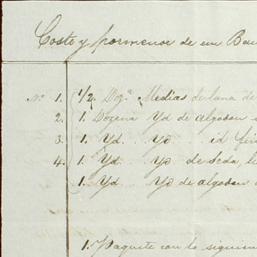 Costo y pormenor de un Bau
No. 1. 1/2 Doza. Medias de lana de
2. 1 Docena Yd de algodon
3. 1. Yd. Yd. id
4. 1. Yd. Yd de seda,
1. Yd. Yd de algodon
1. Paquete con lo siguien